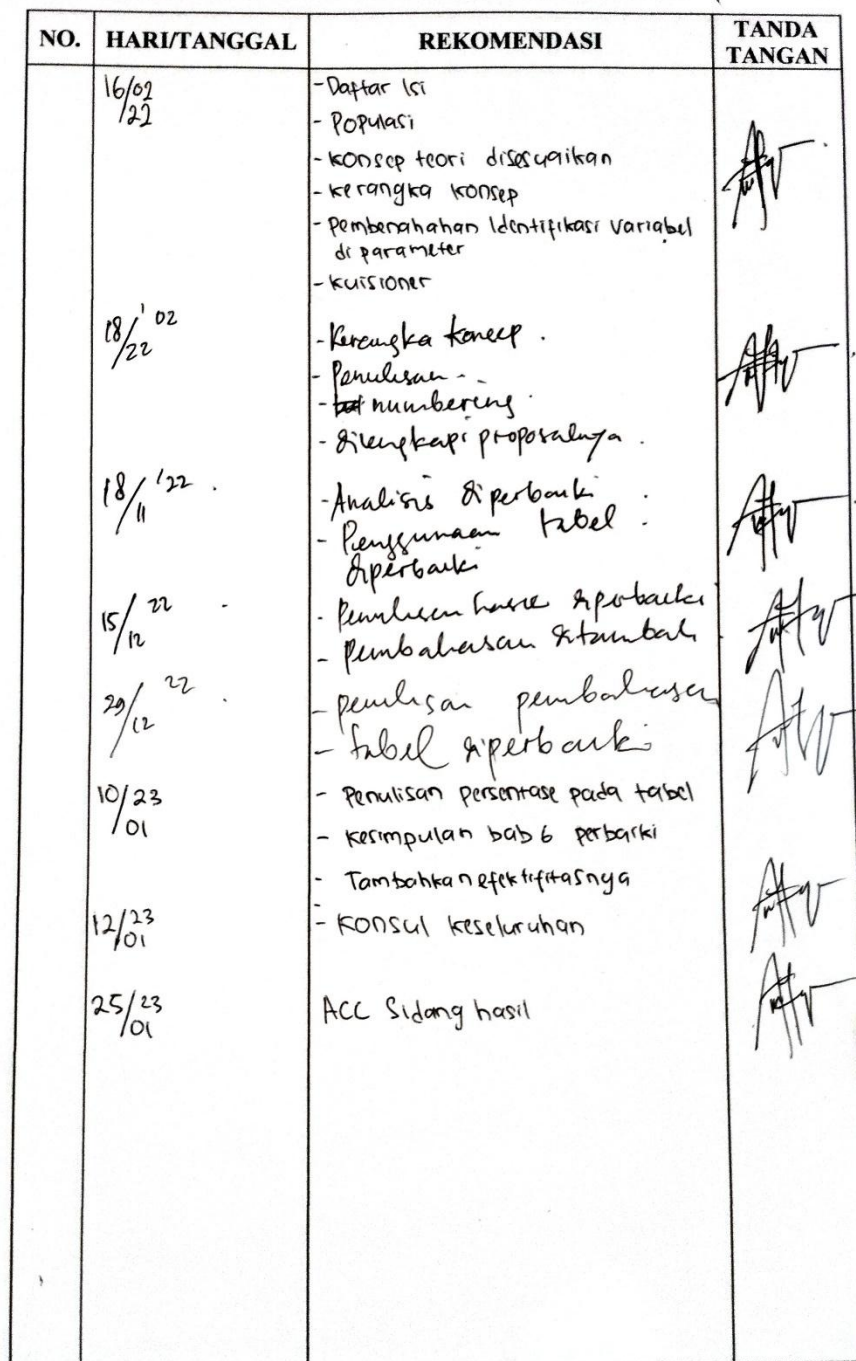 NO. HARI/TANGGAL REKOMENDASI TANDA TANGAN
16/02/22
- Daftar Isi
- Populasi
- Konsep teori disesuaikan
- Kerangka Konsep
- Pembenahahan Identifikasi Variabel
di parameter
- Kuisioner
18/'02/22
- Kerangka Konsep.
- Penulisan.
- numbering.
- dilengkapi proposalnya.
18/11 '22.
- Analisis diperbaiki
- Penggunaan tabel
diperbaiki
15/12 22
- Penulisan hasil diperbaiki
- Pembahasan ditambah
29/12 22.
- penulisan pembahasan
- tabel diperbaiki
10/23/01
- Penulisan persentase pada tabel
- Kesimpulan bab 6 perbaiki
- Tambahkan efektifitasnya
12/23/01
- Konsul keseluruhan
25/23/01
ACC Sidang hasil